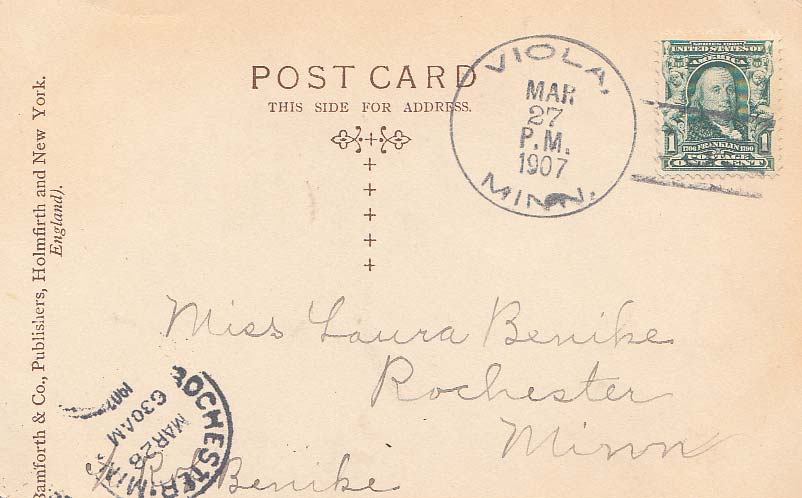 POST CARD
THIS SIDE FOR ADDRESS.
VIOLA,
MAR
27
P.M.
1907
MINN.
SERIES 1902
UNITED STATES OF
AMERICA
1
1706 FRANKLIN 1790
1
POSTAGE
ONE CENT
Bamforth & Co., Publishers, Holmfirth and New York.
England).
Miss Laura Benike
Rochester
Minn
ROCHESTER, MINN.
MAR 28
630AM
1907
Benike